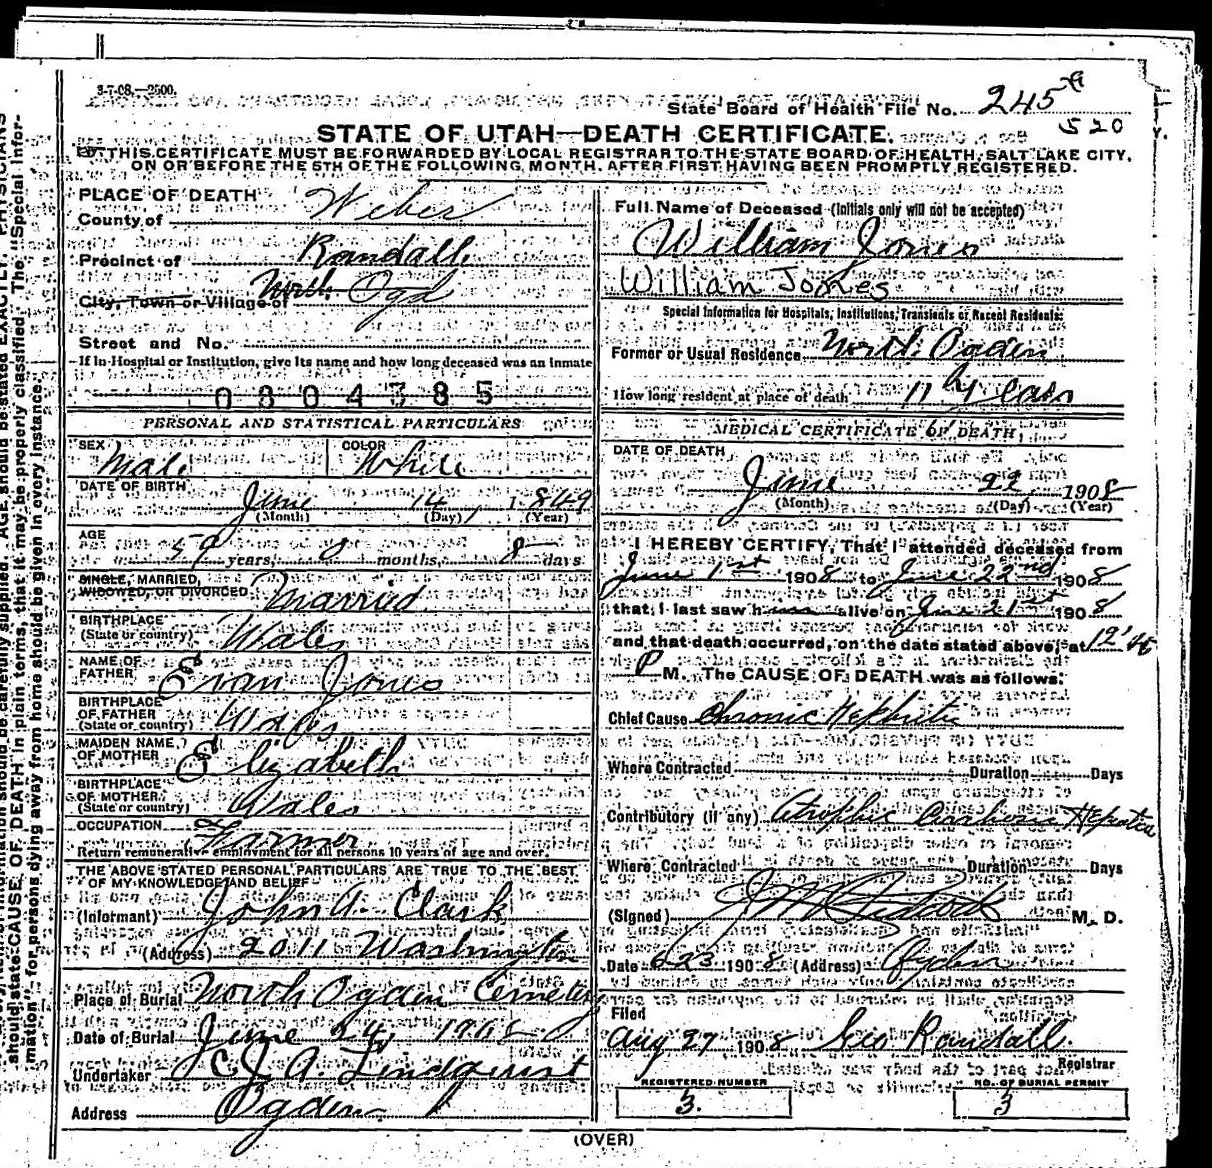 3-7-08.—2500.
State Board of Health File No. 245
520
STATE OF UTAH—DEATH CERTIFICATE.
THIS CERTIFICATE MUST BE FORWARDED BY LOCAL REGISTRAR TO THE STATE BOARD OF HEALTH, SALT LAKE CITY,
ON OR BEFORE THE 5TH OF THE FOLLOWING MONTH, AFTER FIRST HAVING BEEN PROMPTLY REGISTERED.
PLACE OF DEATH
County of Weber
Precinct of Randall
City, Town or Village of North Ogd
Street and No.
If in Hospital or Institution, give its name and how long deceased was an inmate
0804385
PERSONAL AND STATISTICAL PARTICULARS
SEX Male COLOR White
DATE OF BIRTH
June 14, 1849
(Month) (Day) (Year)
AGE
59 years, 0 months, 8 days
SINGLE, MARRIED,
WIDOWED, OR DIVORCED Married
BIRTHPLACE
(State or country) Wales
NAME OF
FATHER Evan Jones
BIRTHPLACE
OF FATHER
(State or country) Wales
MAIDEN NAME
OF MOTHER Elizabeth
BIRTHPLACE
OF MOTHER
(State or country) Wales
OCCUPATION Farmer
Return remunerative employment for all persons 10 years of age and over.
THE ABOVE STATED PERSONAL PARTICULARS ARE TRUE TO THE BEST
OF MY KNOWLEDGE AND BELIEF
(Informant) John A. Clark
(Address) 2011 Washington
Place of Burial North Ogden Cemetery
Date of Burial June 24, 1908
Undertaker C. J. A. Lindquist
Address Ogden
Full Name of Deceased (Initials only will not be accepted)
William Jones
William Jones
Special Information for Hospitals, Institutions, Transients or Recent Residents:
Former or Usual Residence North Ogden
How long resident at place of death 11 Years
MEDICAL CERTIFICATE OF DEATH
DATE OF DEATH
June 22, 1908
(Month) (Day) (Year)
I HEREBY CERTIFY, That I attended deceased from
June 1st 1908 to June 22nd 1908
that I last saw him alive on June 21st 1908
and that death occurred, on the date stated above, at 12'45
P M. The CAUSE OF DEATH was as follows:
Chief Cause Chronic Nephritis
Where Contracted Duration Days
Contributory (if any) Atrophic Cirrhosis Hepatic
Where Contracted Duration Days
(Signed) M. D.
Date 6 23 1908 (Address) Ogden
Filed
Aug 27 1908 Geo Randall
Registrar
REGISTERED NUMBER
3.
NO. OF BURIAL PERMIT
3
(OVER)